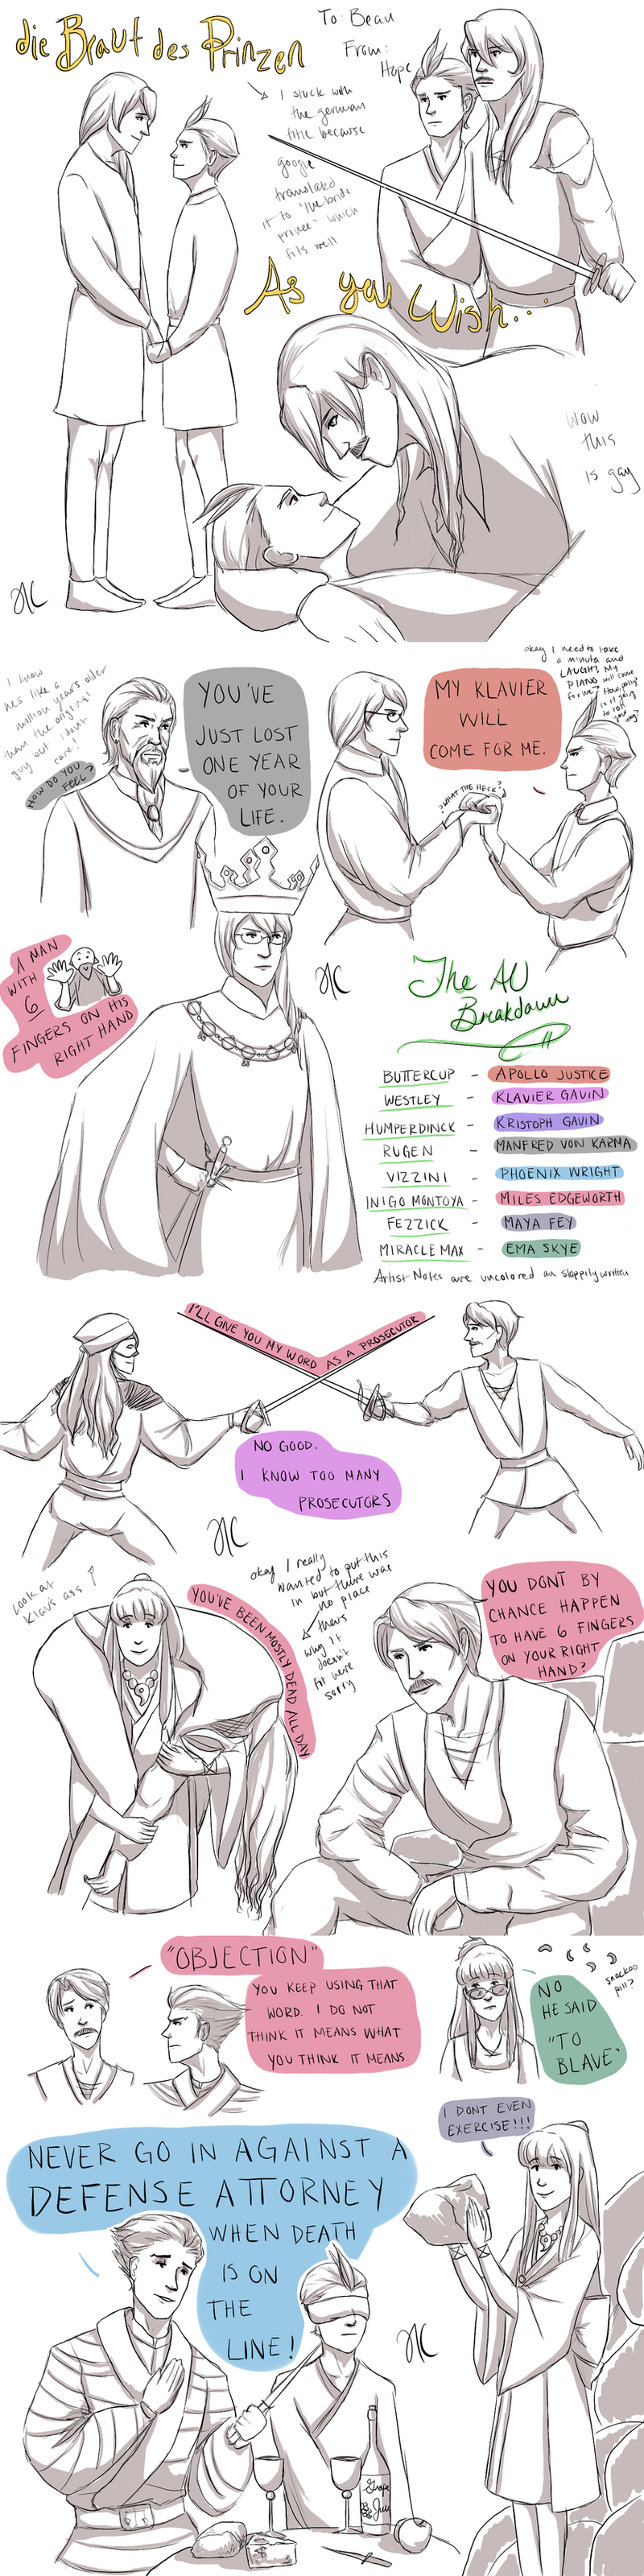 die Braut des Prinzen
To: Beau
From:
Hope
I stuck with
the german
title because
google
translated
it to "the bride
prince" which
fits well
As you Wish...
wow
this
is gay
HC
I know
hes like a
million years older
than the original
guy but I dont
care!
HOW DO YOU
FEEL?
YOU'VE
JUST LOST
ONE YEAR
OF YOUR
LIFE.
MY KLAVIER
WILL
COME FOR ME.
okay I need to take
a minute and
LAUGH! My
PIANO will come
for me? How, polly?
is it going
to roll
your way?
? WHAT THE HECK ?
A MAN
WITH
6
FINGERS ON HIS
RIGHT HAND
HC
The AU
Breakdown
BUTTERCUP - APOLLO JUSTICE
WESTLEY - KLAVIER GAVIN
HUMPERDINCK - KRISTOPH GAVIN
RUGEN - MANFRED VON KARMA
VIZZINI - PHOENIX WRIGHT
INIGO MONTOYA - MILES EDGEWORTH
FEZZICK - MAYA FEY
MIRACLE MAX - EMA SKYE
Artist Notes are uncolored an sloppily written
I'LL GIVE YOU MY WORD AS A PROSECUTOR
NO GOOD.
I KNOW TOO MANY
PROSECUTORS
HC
Look at
Klavs ass
YOU'VE BEEN MOSTLY DEAD ALL DAY
okay I really
wanted to put this
in but there was
no place
thats
why it
doesnt
fit here
sorry
YOU DONT BY
CHANCE HAPPEN
TO HAVE 6 FINGERS
ON YOUR RIGHT
HAND?
"OBJECTION"
YOU KEEP USING THAT
WORD. I DO NOT
THINK IT MEANS WHAT
YOU THINK IT MEANS.
snackoo
pill?
NO
HE SAID
"TO
BLAVE"
I DONT EVEN
EXERCISE!!!
NEVER GO IN AGAINST A
DEFENSE ATTORNEY
WHEN DEATH
IS ON
THE
LINE!
HC
Grape
Juice